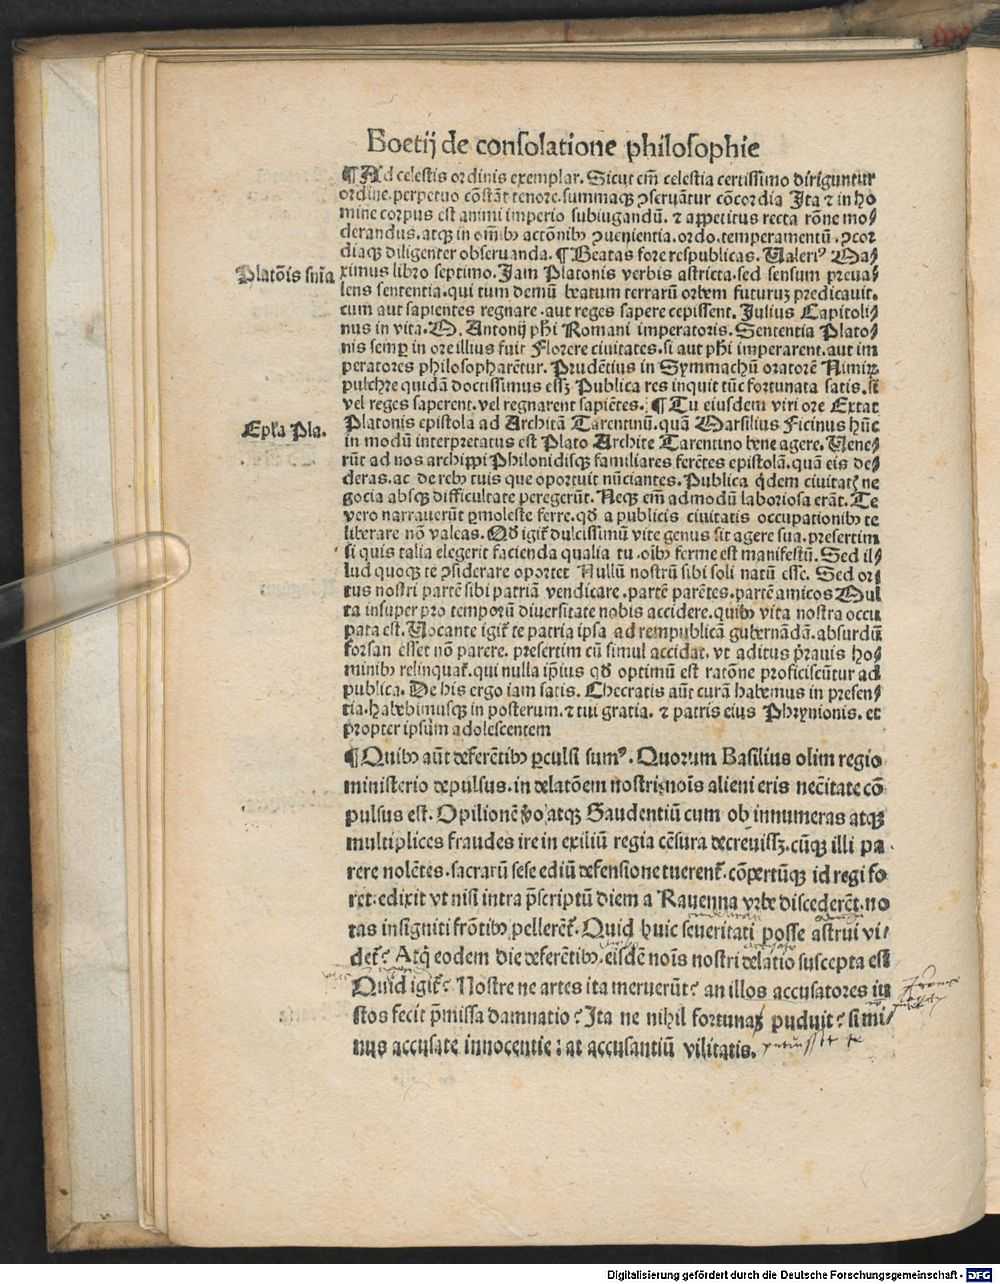 Boetij de consolatione philosophie
¶ Ad celestis ordinis exemplar. Sicut em̄ celestia certissimo diriguntur
ordine. perpetuo cōstāt tenore. summaqꝫ ꝯseruātur cōcordia Ita ⁊ in ho
mine corpus est animi imperio subiugandū. ⁊ appetitus recta rōne mo/
derandus. atqꝫ in om̄ibꝰ actōnibꝰ ꝯuenientia. ordo. temperamentū. ꝯcor
diaqꝫ diligenter obseruanda. ¶ Beatas fore respublicas. Ualeriꝰ Ma/
Platōis snīa
ximus libro septimo. Jam Platonis verbis astricta. sed sensum preua/
lens sententia. qui tum demū beatum terrarū orbem futurūꝫ predicauit.
cum aut sapientes regnare. aut reges sapere cepissent. Julius Capitoli/
nus in vita. M. Antonij ph̄i Romani imperatoris. Sententia Plato/
nis semꝑ in ore illius fuit Florere ciuitates. si aut ph̄i imperarent. aut im
peratores philosopharētur. Prudētius in Symmachū oratorē Nimiꝝ
pulchre quidā doctissimus essꝫ Publica res inquit tūc fortunata satis. si
vel reges saperent. vel regnarent sapiētes. ¶ Tu eiusdem viri ore Extat
Epl̄a Pla.
Platonis epistola ad Architā Tarentinū. quā Marsilius Ficinus hūc
in modū interpretatus est Plato Archite Tarentino bene agere. Uene/
rūt ad nos archippi Philonidisqꝫ familiares ferētes epistolā. quā eis de/
deras. ac de rebꝰ tuis que oportuit nūciantes. Publica qͥdem ciuitatꝭ ne
gocia absqꝫ difficultate peregerūt. Neqꝫ em̄ admodū laboriosa erāt. Te
vero narrauerūt ꝑmoleste ferre. qđ a publicis ciuitatis occupationibꝰ te
liberare nō valeas. Qđ igit̄ dulcissimū vite genus sit agere sua. presertim
si quis talia elegerit facienda qualia tu. oībꝰ ferme est manifestū. Sed il/
lud quoqꝫ te ꝯsiderare oportet Nullū nostrū sibi soli natū esse. Sed or/
tus nostri partē sibi patriā vendicare. partē parētes. partē amicos Mul
ta insuper pro temporū diuersitate nobis accidere. quibꝰ vita nostra occu
pata est. Uocante igit̄ te patria ipsa ad rempublicā gubernādā. absurdū
forsan esset nō parere. presertim cū simul accidat. vt aditus p̄rauis ho/
minibꝰ relinquat̄. qui nulla ip̄ius qđ optimū est ratōne proficiscūtur ad
publica. De his ergo iam satis. Checratis aūt curā habemus in presen/
tia. habebimusqꝫ in posterum. ⁊ tui gratia. ⁊ patris eius Phrynionis. et
propter ipsum adolescentem
¶ Quibꝰ aūt deferētibꝰ ꝑculsi sumꝰ. Quorum Basilius olim regio
ministerio depulsus. in delatōem nostri noīs alieni eris nec̄itate cō
pulsus est. Opilionē v̄o atqꝫ Gaudentiū cum ob innumeras atqꝫ
multiplices fraudes ire in exiliū regia cēsura decreuissꝫ. cūqꝫ illi pa
rere nolētes. sacrarū sese ediū defensione tuerent̄. cōpertūqꝫ id regi fo
ret. edixit vt nisi intra p̄scriptū diem a Rauenna vrbe discederēt. no
tas insigniti frōtibꝰ pellerēt̄. Quid huic seueritati posse astrui vi/
det̄? Atq̄ eodem die deferētibꝰ eisdē noīs nostri delatio suscepta est
Quid igit̄? Nostre ne artes ita meruerūt? an illos accusatores iu
stos fecit p̄missa damnatio? Ita ne nihil fortunaꝫ puduit? si mi/
nus accusate innocentie: at accusantiū vilitatis.
Digitalisierung gefördert durch die Deutsche Forschungsgemeinschaft - DFG